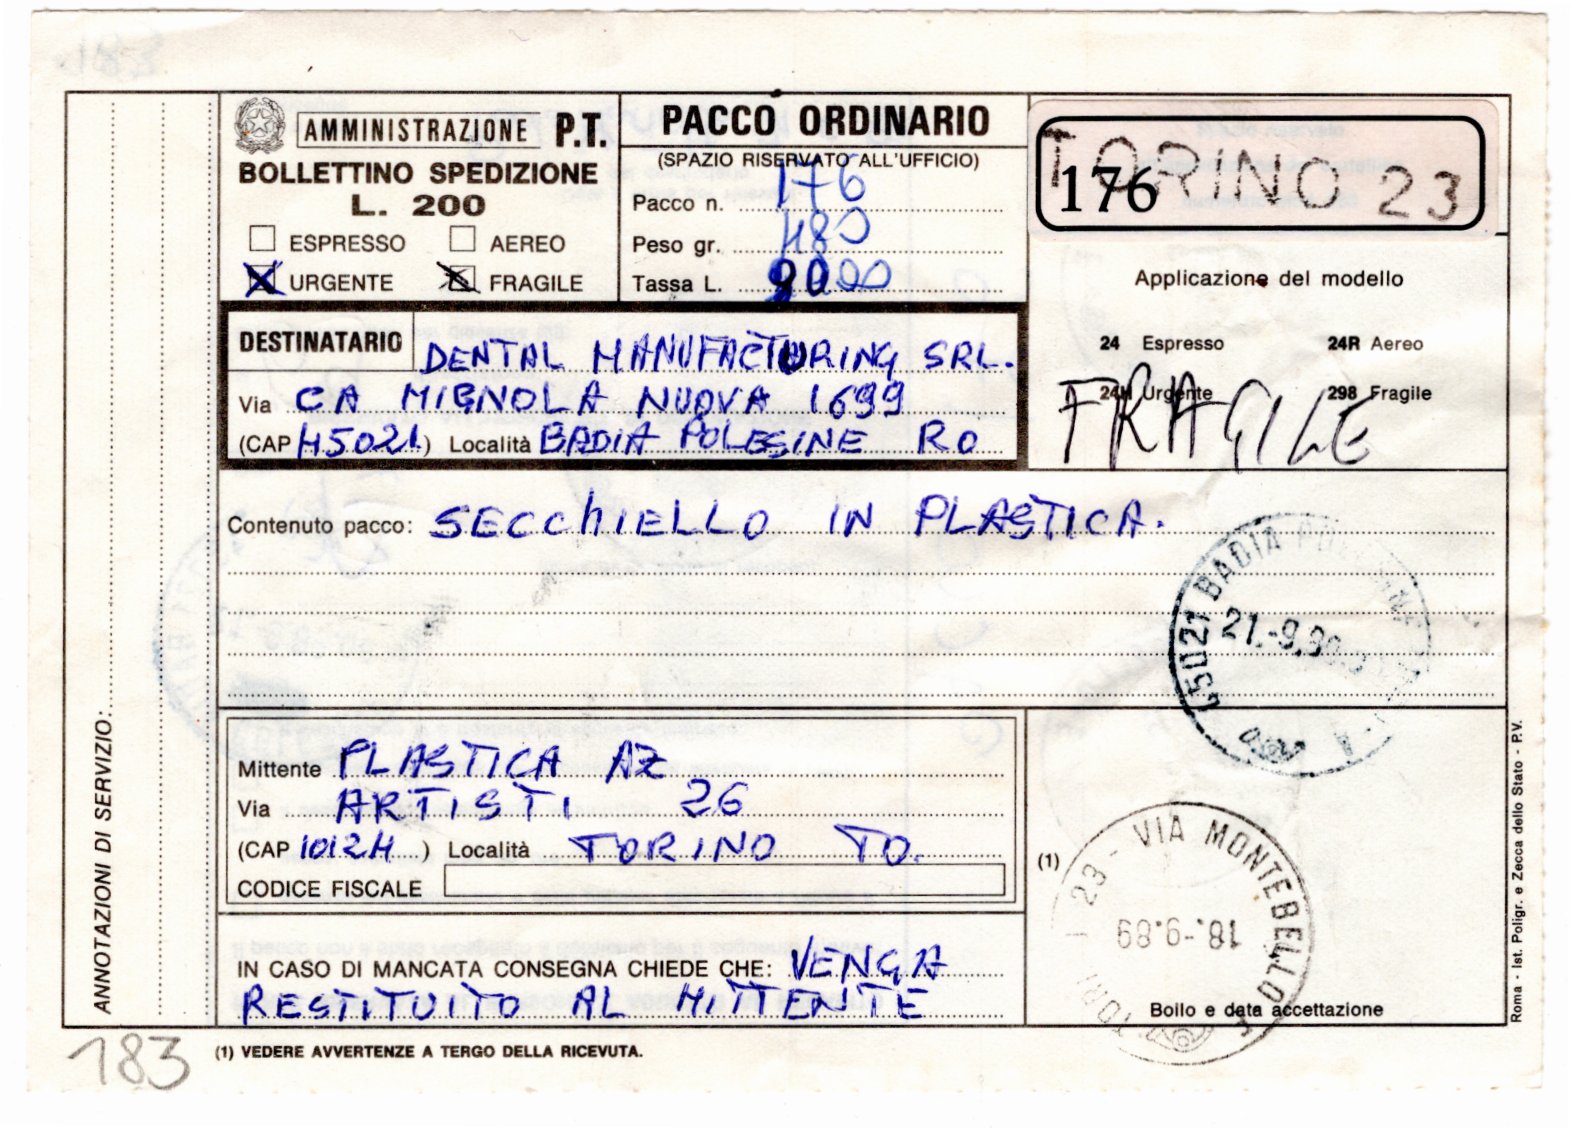 AMMINISTRAZIONE P.T.
BOLLETTINO SPEDIZIONE
L. 200
ESPRESSO AEREO
URGENTE FRAGILE
PACCO ORDINARIO
(SPAZIO RISERVATO ALL'UFFICIO)
Pacco n. 176
Peso gr. 480
Tassa L. 9000
TORINO 23
176
Applicazione del modello
24 Espresso 24R Aereo
24H Urgente 298 Fragile
FRAGILE
DESTINATARIO DENTAL MANUFACTURING SRL.
Via CA MIGNOLA NUOVA 1699
(CAP 45021) Località BADIA POLESINE RO
Contenuto pacco: SECCHIELLO IN PLASTICA.
45021 BADIA
21.-9.
Mittente PLASTICA AZ
Via ARTISTI 26
(CAP 10124) Località TORINO TO.
CODICE FISCALE
IN CASO DI MANCATA CONSEGNA CHIEDE CHE: VENGA
RESTITUITO AL MITTENTE
(1)
23 - VIA MONTEBELLO
18.-9.89
Bollo e data accettazione
ANNOTAZIONI DI SERVIZIO:
Roma - Ist. Poligr. e Zecca dello Stato - P.V.
183
(1) VEDERE AVVERTENZE A TERGO DELLA RICEVUTA.